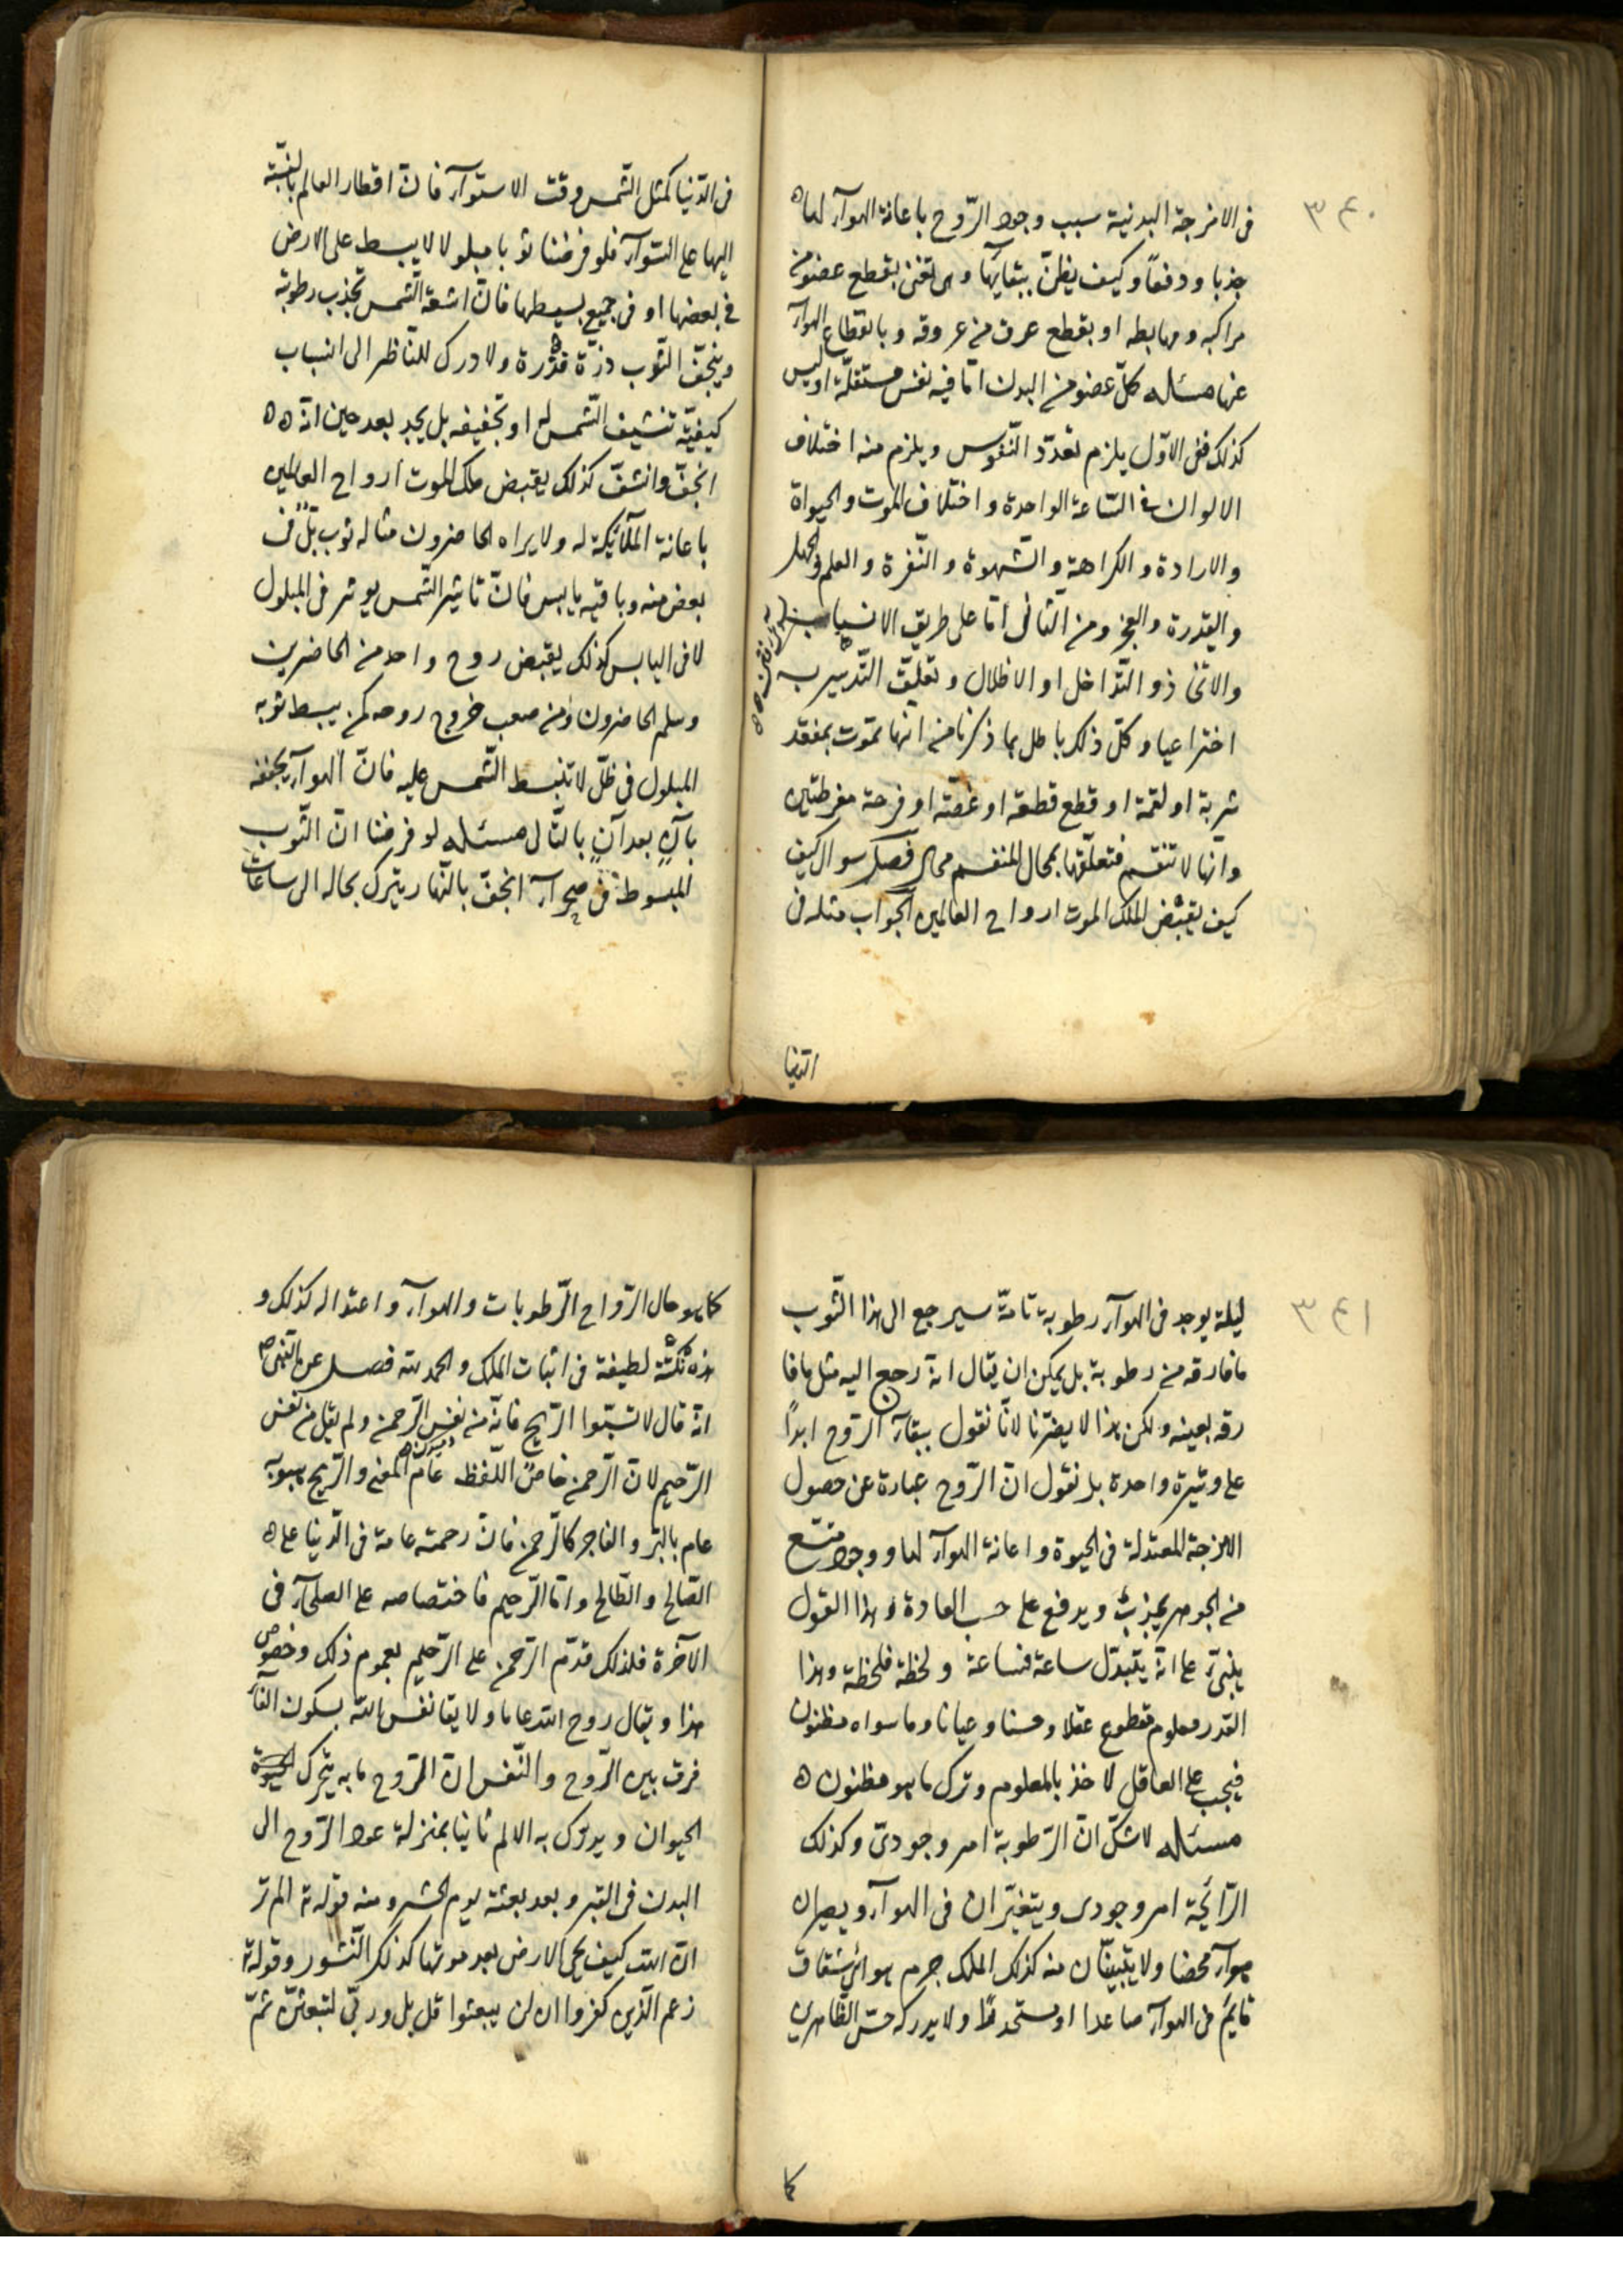 ٣٤٠
فى الامزجة البدنية سبب وجود الرّوح باعانة الهوآء لها
جذبا ودفعاً وكيف يظنّ ببقآيها وهى تفنى بقطع عضو من
مراكبه ومهابطه او بقطع عرق من عروقه وبانقطاع الهوآء
عنها مسئله كلّ عضو من البدن امّا فيه نفس مستقلّة او ليس
كذلك ففى الاوّل يلزم تعدّد النّفوس ويلزم منه اختلاف
الالوان فى السّاعة الواحدة واختلاف الموت والحيواة
والارادة والكراهة والشّهوة والنّفرة والعلم والجهل
والقدرة والعجز ومن الثّانى امّا على طريق الانسياب
والانّى ذو التّداخل او الاظلال وتعليق التّدبير ب
اختراعيا وكلّ ذلك باطل بما ذكرنا من انّها تموت بمفقد
شربة او لقمة او قطع قطعة او غصّة او فرحة مفرطتين
وانّها لا تنقسم فتعلّقها بمحال المنقسم محال فصل سوال كيف
كيف يقبض الملك الموت ارواح العالمين الجواب مثله فى
الدّنيا
فى الدّنيا كمثل الشّمس وقت الاستوآء فانّ اقطار العالم بالنّسبة
اليها على السّوآء فلو فرضنا ثوبا مبلولا لا يبسط على الارض
فى بعضها او فى جميع بسيطها فانّ اشعة الشّمس تجذب رطوبة
وينجفّ الثّوب ذرّة فذّرة ولا درك للنّاظر الى انسياب
كيفيّة تنشيف الشّمس له او تجفيفه بل يجد بعد حين انّه
انجفّ وانشفّ كذلك يقبض ملك الموت ارواح العالمين
باعانة الملآئيكة له ولا يراه الحاضرون مثاله ثوب بلّ فى
بعض منه وباقيه يابس فانّ تاثير الشّمس يوثر فى المبلول
لا فى اليابس كذلك يقبض روح واحد من الحاضرين
وسلم الحاضرون ومن صعب خروج روحه كمن يبسط ثوبه
المبلول فى ظلّ لا تنبسط الشّمس عليه فانّ الهوآء يجففه
بآنٍ بعد آنٍ بالتّالى مسئله لو فرضنا انّ الثّوب
المبسوط فى صحرآء انجفّ بالنّهار يترك بحاله الى ساعات
٣٤١
ليلة يوجد فى الهوآء رطوبة تامّة سيرجع الى هذا الثّوب
ما فارقه من رطوبة بل يمكن ان يقال انه رجع اليه مثل ما فا
رقه بعينه ولكن هذا لا يضرّنا لانّا نقول ببقآء الرّوح ابداً
على وتيرة واحدة بل نقول انّ الرّوح عبارة عن حصول
الامزجة المعتدلة فى الحيوة واعانة الهوآء لها ووجود
من الجوهر يجذب ويدفع على حسب العادة وهذا القول
يبنىّ على انّه يتبدّل ساعة فساعة ولحظة فلحظة وهذا
القدر معلوم مقطوع عقلا وحسّا وعيانا وما سواه مظنون
فيجب على العاقل لاخذ بالمعلوم وترك ما هو مظنون
مسئله لا شكّ انّ الرّطوبة امر وجودىّ وكذلك
الرّائحة امر وجودى ويتغيّران فى الهوآء ويصيران
هوآء محضا ولا يتبيّنان منه كذلك الملك جرم هوائى شفاف
قايم فى الهوآء صاعدا او مستحدطًا ولا يدركه حسّ الظّاهرى
كما
كما هو حال الرّواح الرّطوبات والهوآء واعتداله كذلك و
هذه نكتة لطيفة فى اثبات الملك والحمد لله فصل عن النّبى ص
انّه قال لا تسبّوا الرّيح فانّه من نفس الرّحمن ولم يقل من نفس
الرّحيم لانّ الرّحمن خاصّ اللّفظ عام المعنى والرّيح هبوبه
عام بالبرّ والفاجر كالرّحمن فانّ رحمته عامة فى الدّنيا على
الصّالح والطّالح وامّا الرّحيم فاختصاصه على الصلحآء فى
الآخرة فلذلك قدّم الرّحمن على الرّحيم بعموم ذلك وخصوص
هذا ويقال روح الله عاما ولا يقا نفس الله بسكون الفآء
فرق بين الرّوح والنّفس انّ الرّوح ما به يتحرك
الحيوان ويدرك به الالم ثانيا بمنزلة عود الرّوح الى
البدن فى القبر وبعد بعثه يوم الحشر ومنه قوله تع الم تر
انّ الله كيف يحى الارض بعد موتها كذلك النّشور وقوله تع
زعم الّذين كفروا ان لن يبعثوا قل بلى وربّى لتبعثنّ ثمّ